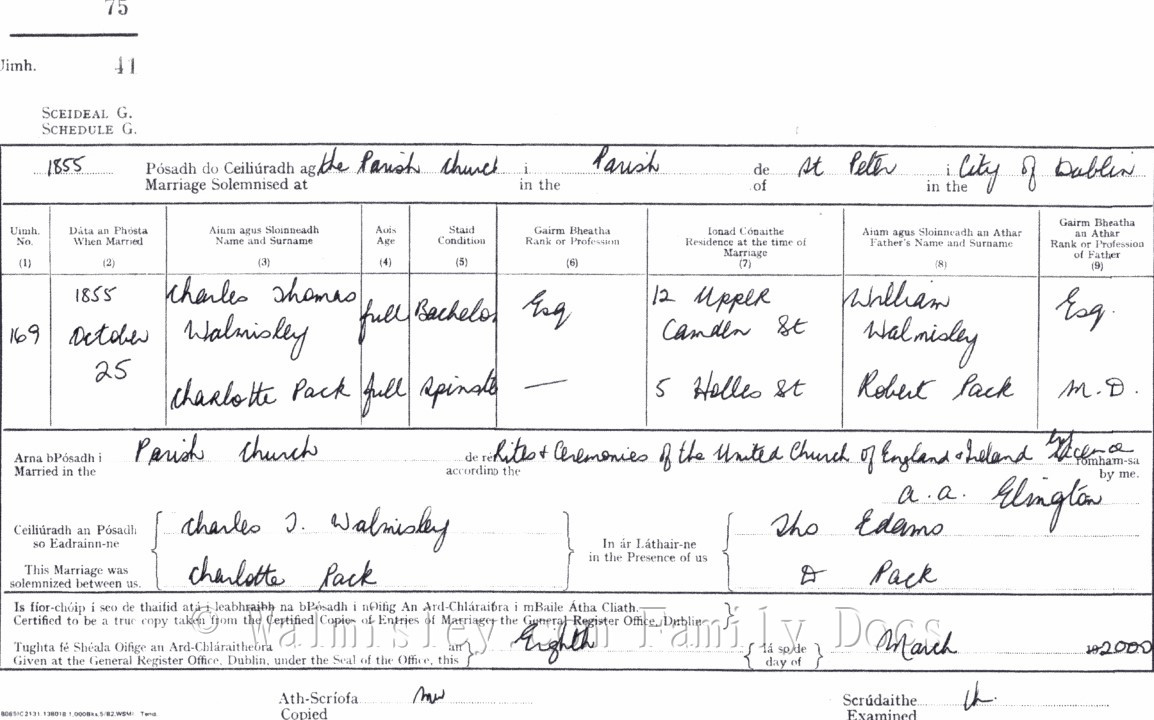 75
Uimh. 41
SCEIDEAL G.
SCHEDULE G.
1855 Pósadh do Ceiliúradh ag the Parish Church i Parish de St Peter i City of Dublin
Marriage Solemnised at in the of in the
Uimh. No. (1) Dáta an Phósta When Married (2) Ainm agus Sloinneadh Name and Surname (3) Aois Age (4) Staid Condition (5) Gairm Bheatha Rank or Profession (6) Ionad Cónaithe Residence at the time of Marriage (7) Ainm agus Sloinneadh an Athar Father's Name and Surname (8) Gairm Bheatha an Athar Rank or Profession of Father (9)
169 1855 October 25 Charles Thomas Walmisley full Bachelor Esq 12 Upper Camden St William Walmisley Esq.
Charlotte Pack full Spinste — 5 Holles St Robert Pack M.D.
Arna bPósadh i Parish Church de réir Rites & Ceremonies of the United Church of England & Ireland by Licence romham-sa
Married in the according the by me.
a. a. Elington
Ceiliúradh an Pósadh so Eadrainn-ne Charles T. Walmisley In ár Láthair-ne Tho Edams
This Marriage was solemnized between us. Charlotte Pack in the Presence of us D Pack
Is fíor-chóip í seo de thaifid atá i leabhraibh na bPósadh i nOifig An Ard-Chláraithora i mBaile Átha Cliath.
Certified to be a true copy taken from the Certified Copies of Entries of Marriage, the General Register Office, Dublin
© Walmisley.com Family Docs
Tughta fé Shéala Oifige an Ard-Chláraitheora an Eighth lá so/de March 2000
Given at the General Register Office, Dublin, under the Seal of the Office, this day of
Ath-Scríofa Scrúdaithe
Copied Examined